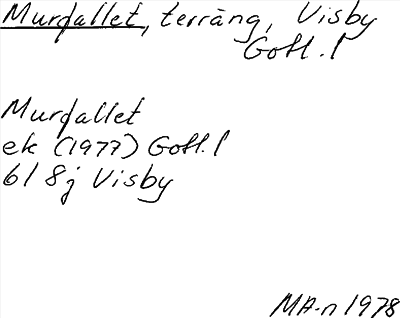 Murfallet, terräng, Visby
Gotl. l
Murfallet
ek (1977) Gotl. l
6I 8j Visby
MA-n 1978